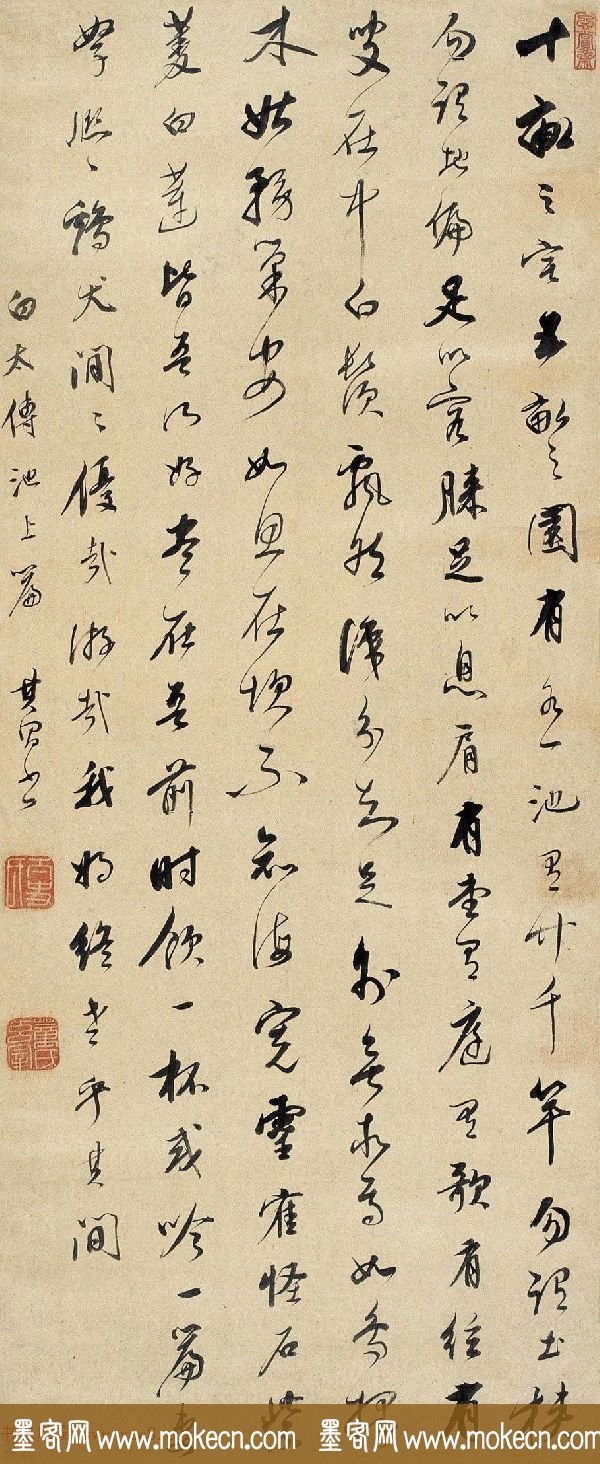 十畝之宅五畝之園有水一池有竹千竿勿謂土狹
勿謂地偏足以容膝足以息肩有堂有庭有歌有絃有
叟在中白鬚飄然識分知足外無求焉如鳥擇
木姑務巢安如龜在坎不知海寬靈雀怪石紫
菱白蓮皆吾所好盡在吾前時飲一杯或吟一篇妻
孥熙々鷄犬閒々優哉游哉我將終老乎其間
白太傅池上篇 其昌書
墨客网 www.mokecn.com 墨客网 www.mokecn.com